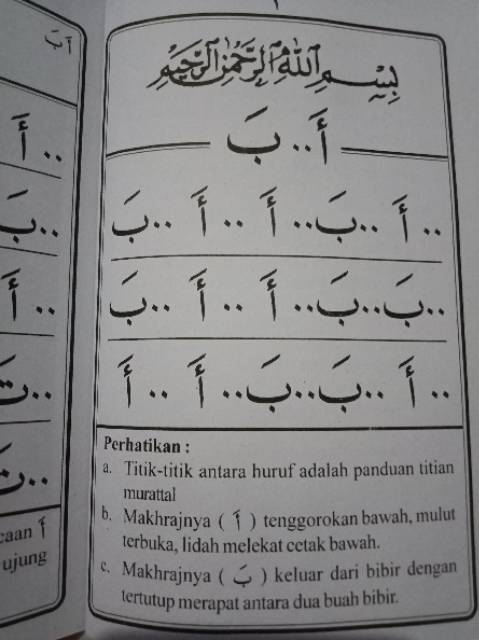 ١
بِسْمِ اللهِ الرَّحْمٰنِ الرَّحِيْمِ
أَ .. بَ
.. أَ .. بَ .. أَ .. أَ .. بَ
.. بَ .. بَ .. أَ .. أَ .. بَ
.. أَ .. بَ .. بَ .. أَ .. أَ
Perhatikan :
a. Titik-titik antara huruf adalah panduan titian
murattal
b. Makhrajnya ( أَ ) tenggorokan bawah, mulut
terbuka, lidah melekat cetak bawah.
c. Makhrajnya ( بَ ) keluar dari bibir dengan
tertutup merapat antara dua buah bibir.
أَ بَ
.. أَ
.. بَ
.. أَ
.. تَ
.. تَ
caan أَ
ujung